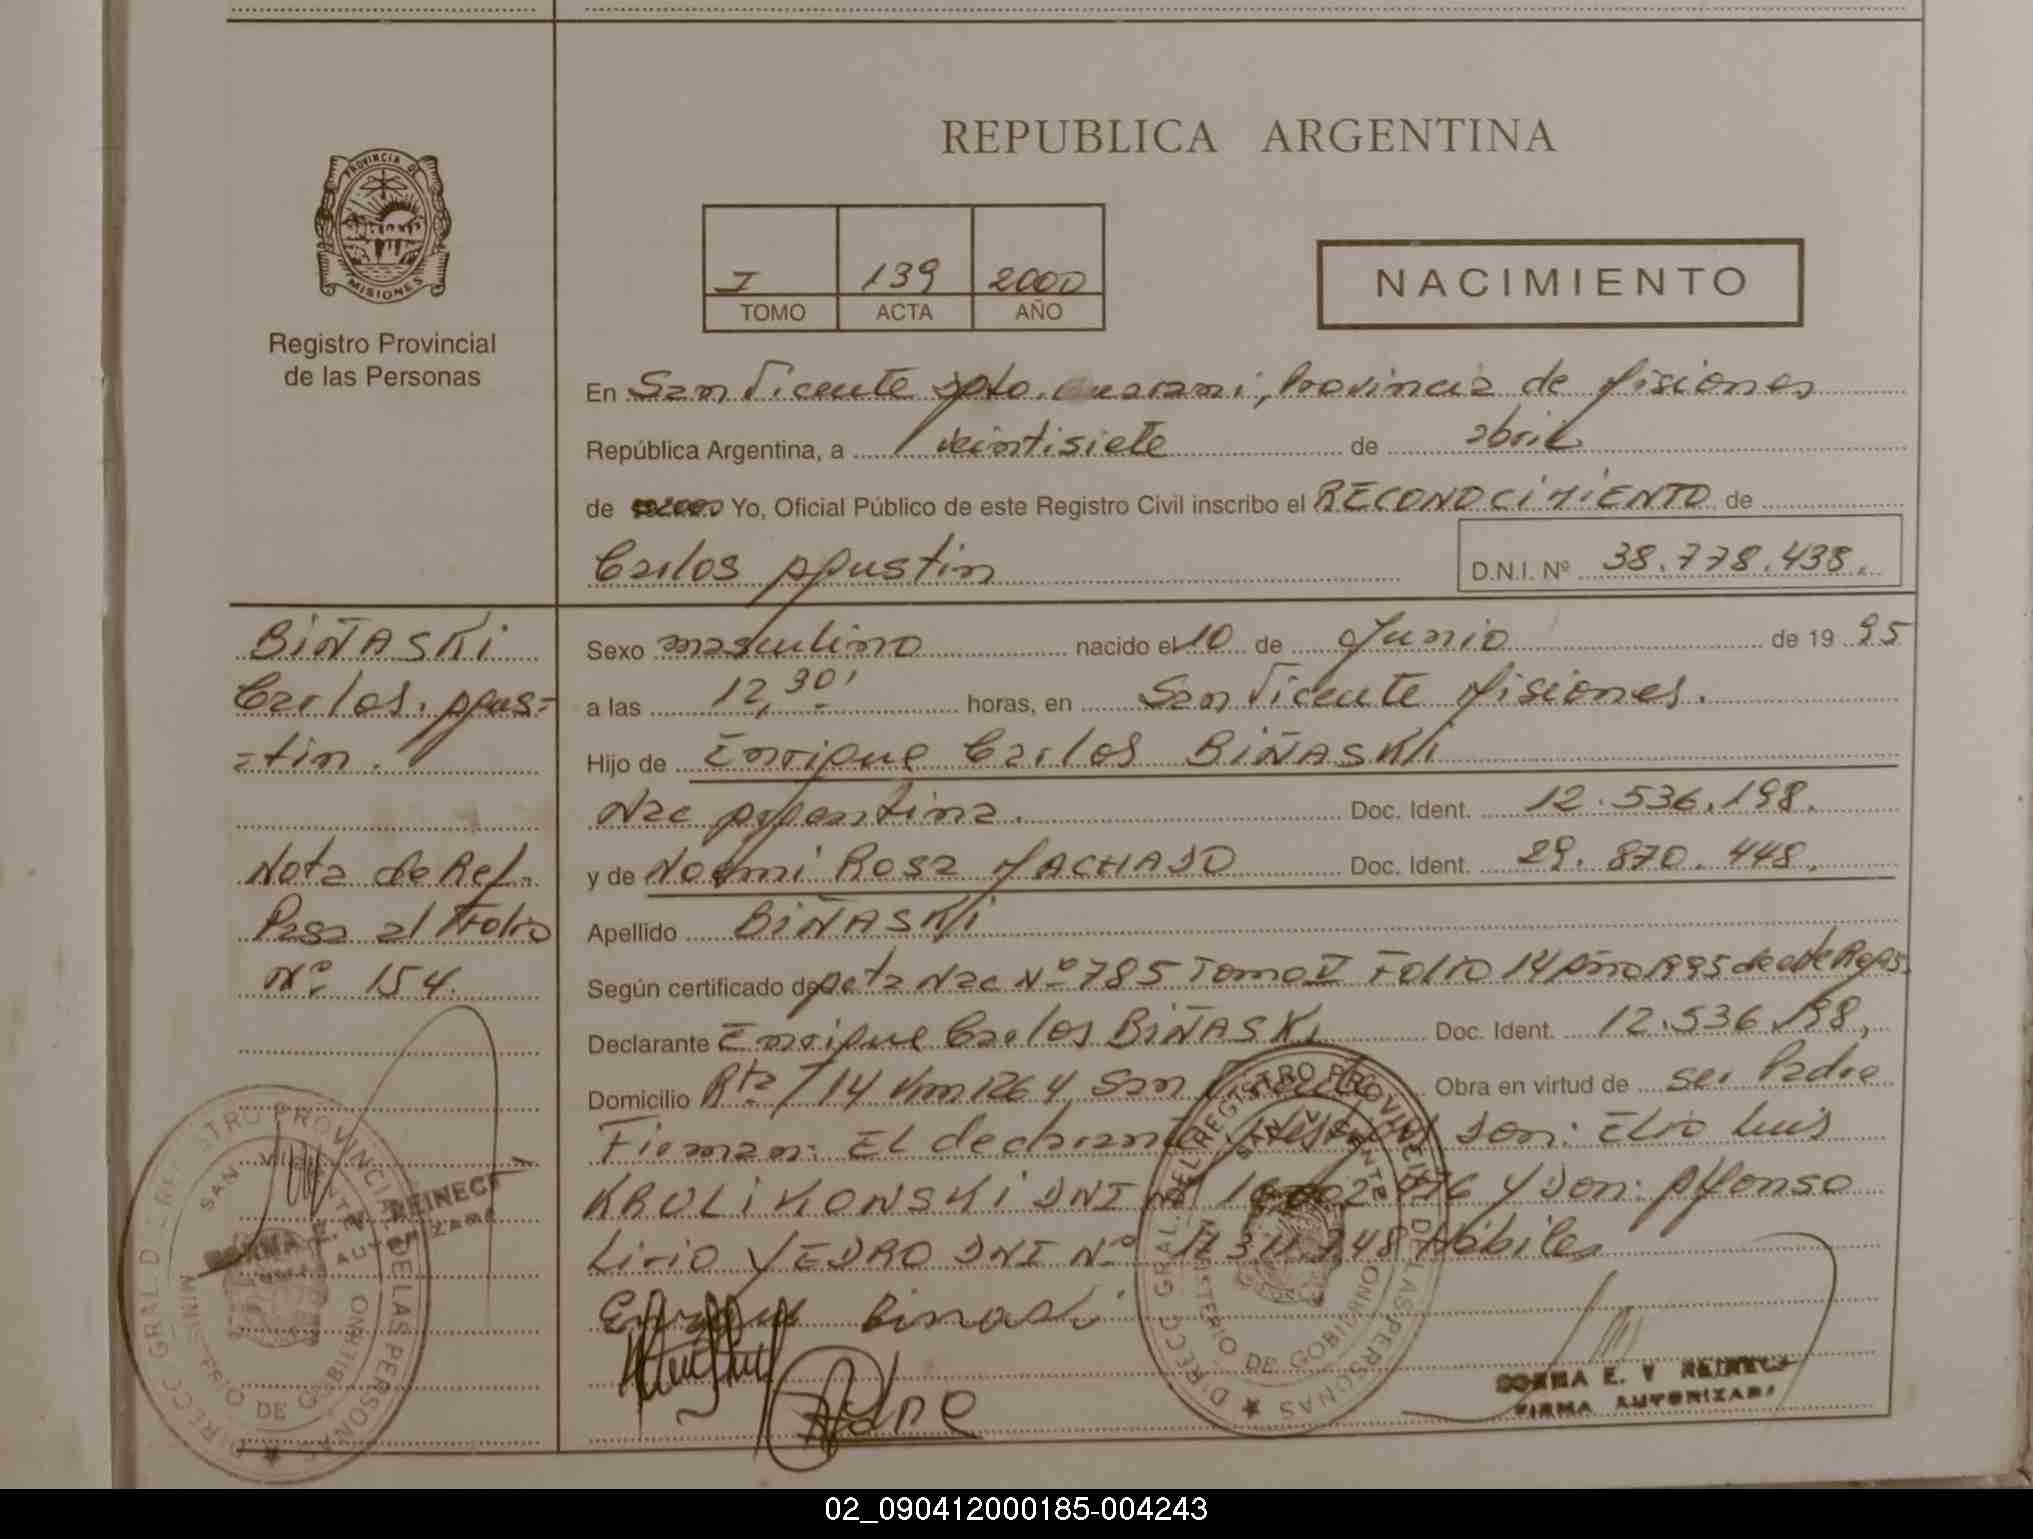 REPUBLICA ARGENTINA
PROVINCIA DE
MISIONES
Registro Provincial
de las Personas
I 139 2000
TOMO ACTA AÑO
NACIMIENTO
En San Vicente Dpto. Guarani, Provincia de Misiones
República Argentina, a veintisiete de abril
de 2000 Yo, Oficial Público de este Registro Civil inscribo el RECONOCIMIENTO de
Carlos Agustin D.N.I. Nº 38.778.438.
BIÑASKI
Carlos. Agus=
=tin.
Nota de Ref.
Pasa al Folio
Nº 154.
Sexo masculino nacido el 10 de Junio de 19 95
a las 12,30' horas, en San Vicente Misiones.
Hijo de Enrique Carlos BIÑASKI
Nac Argentina. Doc. Ident. 12.536.198.
y de Noemi Rosa MACHADO Doc. Ident. 29.870.448.
Apellido BIÑASKI
Según certificado de Acta Nac Nº 785 Tomo Folio 14 Año 1995 de
Declarante Enrique Carlos BIÑASKI Doc. Ident. 12.536.198,
Domicilio Rta 14 Km 1264 San Obra en virtud de ser Padre
Firman: El declarante, Don: Elio Luis
KROLIKONSKI DNI Nº y Don: Alfonso
Lirio YEDRO DNI Nº Hábiles
Enrique Binaski
DIRECC GRAL DEL REGISTRO PROVINCIAL DE LAS PERSONAS
SAN VICENTE
MINISTERIO DE GOBIERNO
NORMA E. V REINECK
FIRMA AUTORIZADA
DIRECC GRAL DEL REGISTRO PROVINCIAL DE LAS PERSONAS
SAN VICENTE
MINISTERIO DE GOBIERNO
NORMA E. V REINECK
FIRMA AUTORIZADA
02_090412000185-004243